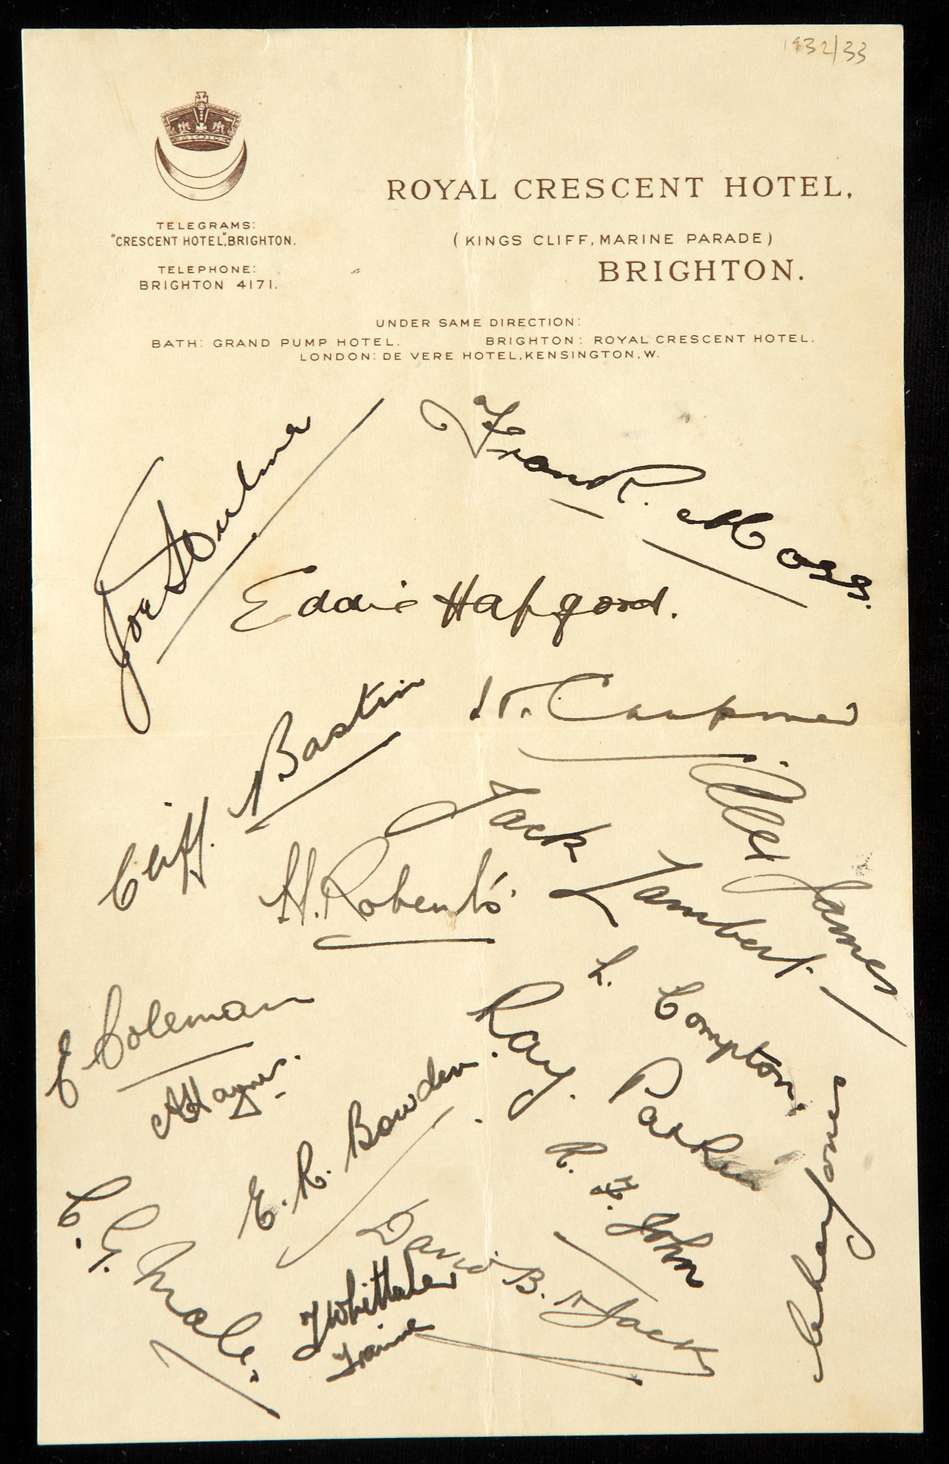 1932/33
ROYAL CRESCENT HOTEL,
TELEGRAMS:
"CRESCENT HOTEL", BRIGHTON.
(KINGS CLIFF, MARINE PARADE)
BRIGHTON.
TELEPHONE:
BRIGHTON 4171.
UNDER SAME DIRECTION:
BATH: GRAND PUMP HOTEL. BRIGHTON: ROYAL CRESCENT HOTEL.
LONDON: DE VERE HOTEL, KENSINGTON, W.
Frank. Moss.
Joe Hulme
Eddie Hapgood.
H. Chapman
Cliff. Bastin
Alex James
Jack Lambert.
H. Roberts.
L. Compton.
E Coleman
Ray. Parkin
A Haynes.
E. R. Bowden
R. F. John
Charlie Jones
C. G. Male.
David B. N Jack
T Whittaker
Trainer